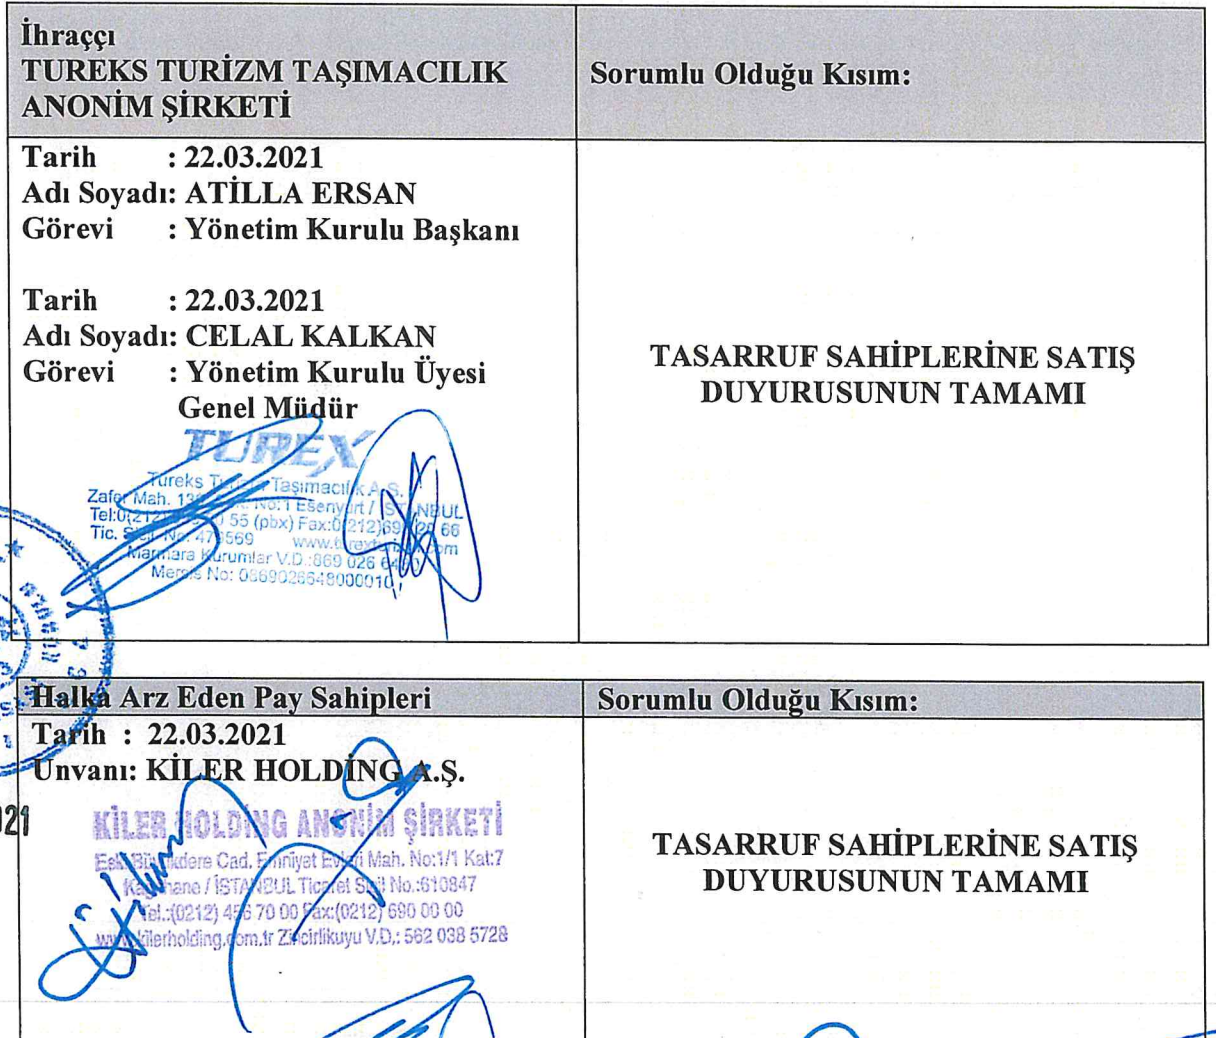 İhraççı
TUREKS TURİZM TAŞIMACILIK
ANONİM ŞİRKETİ
Sorumlu Olduğu Kısım:
Tarih : 22.03.2021
Adı Soyadı: ATİLLA ERSAN
Görevi : Yönetim Kurulu Başkanı
Tarih : 22.03.2021
Adı Soyadı: CELAL KALKAN
Görevi : Yönetim Kurulu Üyesi
Genel Müdür
TASARRUF SAHİPLERİNE SATIŞ
DUYURUSUNUN TAMAMI
TUREX
Tureks Taşımacılık A.Ş.
Zafer Mah. No:1 Esenyurt / İSTANBUL
55 (pbx) Fax:0(212)
Tic. Sicil No:
Marmara Kurumlar V.D.:869 026
Mersis No: 0869026548000010
Halka Arz Eden Pay Sahipleri
Sorumlu Olduğu Kısım:
Tarih : 22.03.2021
Unvanı: KİLER HOLDİNG A.Ş.
KİLER HOLDİNG ANONİM ŞİRKETİ
Eski Büyükdere Cad. Emniyet Evleri Mah. No:1/1 Kat:7
Kağıthane / İSTANBUL Ticaret Sicil No.:610847
Tel.:(0212) 456 70 00 Fax:(0212) 690 00 00
www.kilerholding.com.tr Zincirlikuyu V.D.: 562 038 5728
TASARRUF SAHİPLERİNE SATIŞ
DUYURUSUNUN TAMAMI